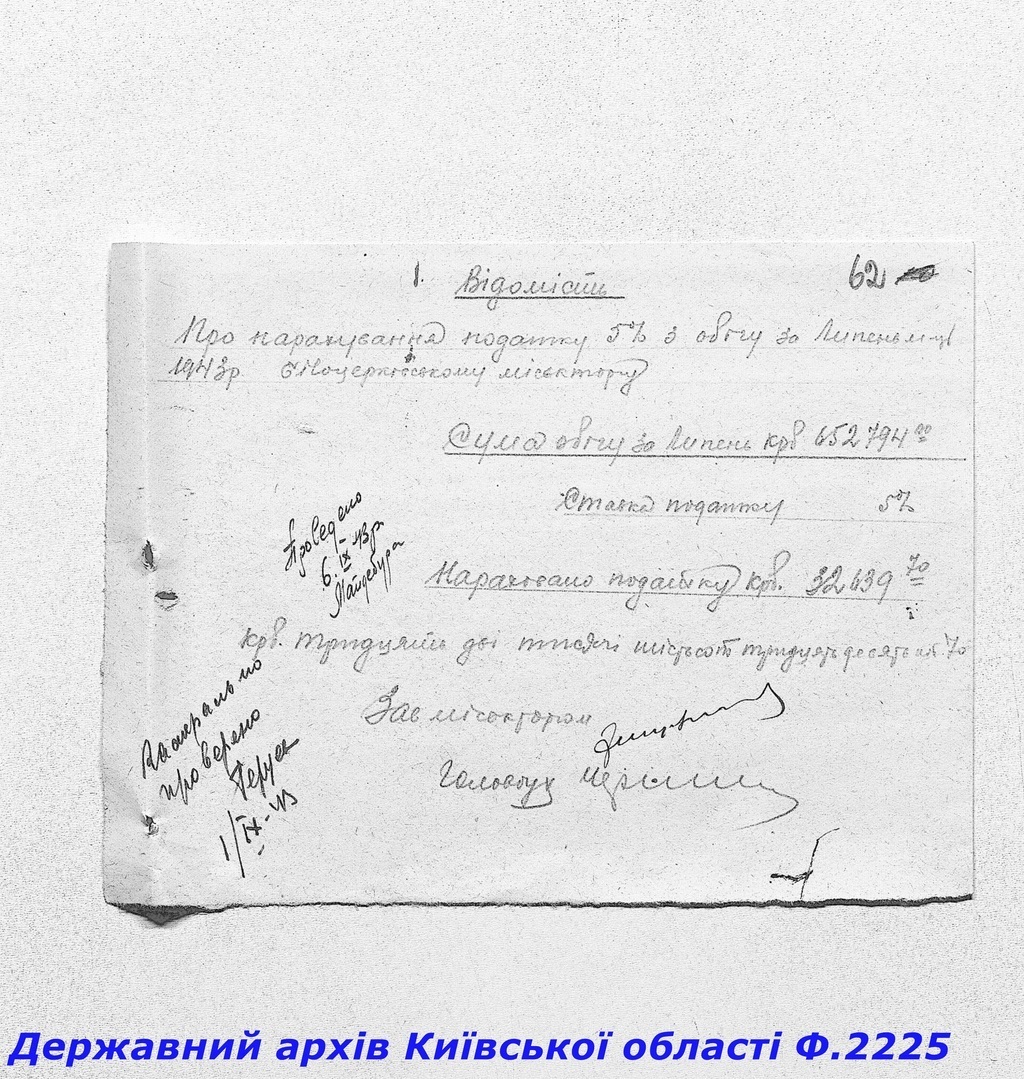 1. Відомість
62
Про нарахування податку 5% з обігу за Липень м-ць
1943р. Білоцерківському міськторгу
Сума обігу за Липень крб 652794 00
Ставка податку 5%
Нараховано податку крб. 32639 70
крб. тридцять дві тисячі шістьсот тридцять девять 70
Проведено
6.IX.43р.
Зав міськторгом
Головбух
проверено
1/IX-43
Державний архів Київської області Ф.2225